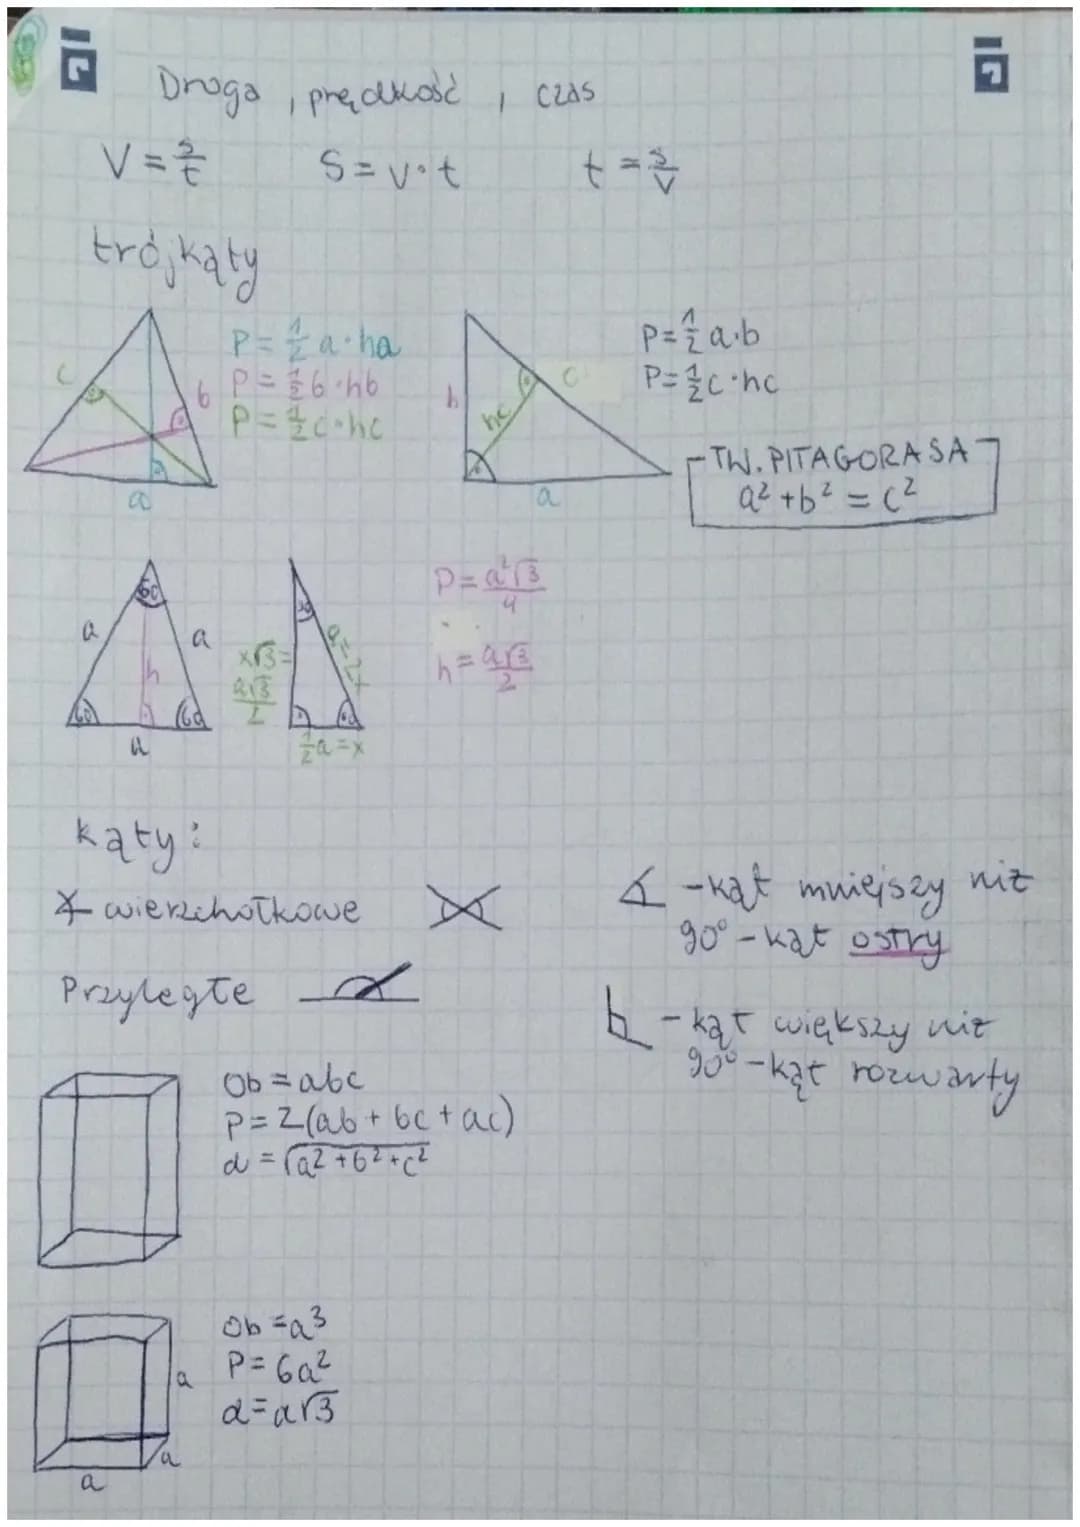 Droga, prędkość, czas
V = s/t    S = v·t    t = s/v
trójkąty
c b a
P = 1/2 a·ha
P = 1/2 b·hb
P = 1/2 c·hc
b hc c a
P = 1/2 a·b
P = 1/2 c·hc
TW. PITAGORASA
a² + b² = c²
60 a a h 60 60 a
30 x√3 = a√3/2 60
1/2a = x
P = a²√3/4
h = a√3/2
kąty:
∢ wierzchołkowe
Przyległe
- kąt mniejszy niż
90° - kąt ostry
- kąt większy niż
90° - kąt rozwarty
Ob = abc
P = 2(ab + bc + ac)
d = √a² + b² + c²
Ob = a³
P = 6a²
d = a√3
a
a
a